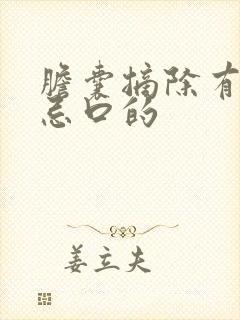 膽囊摘除有
忌口的
姜立夫